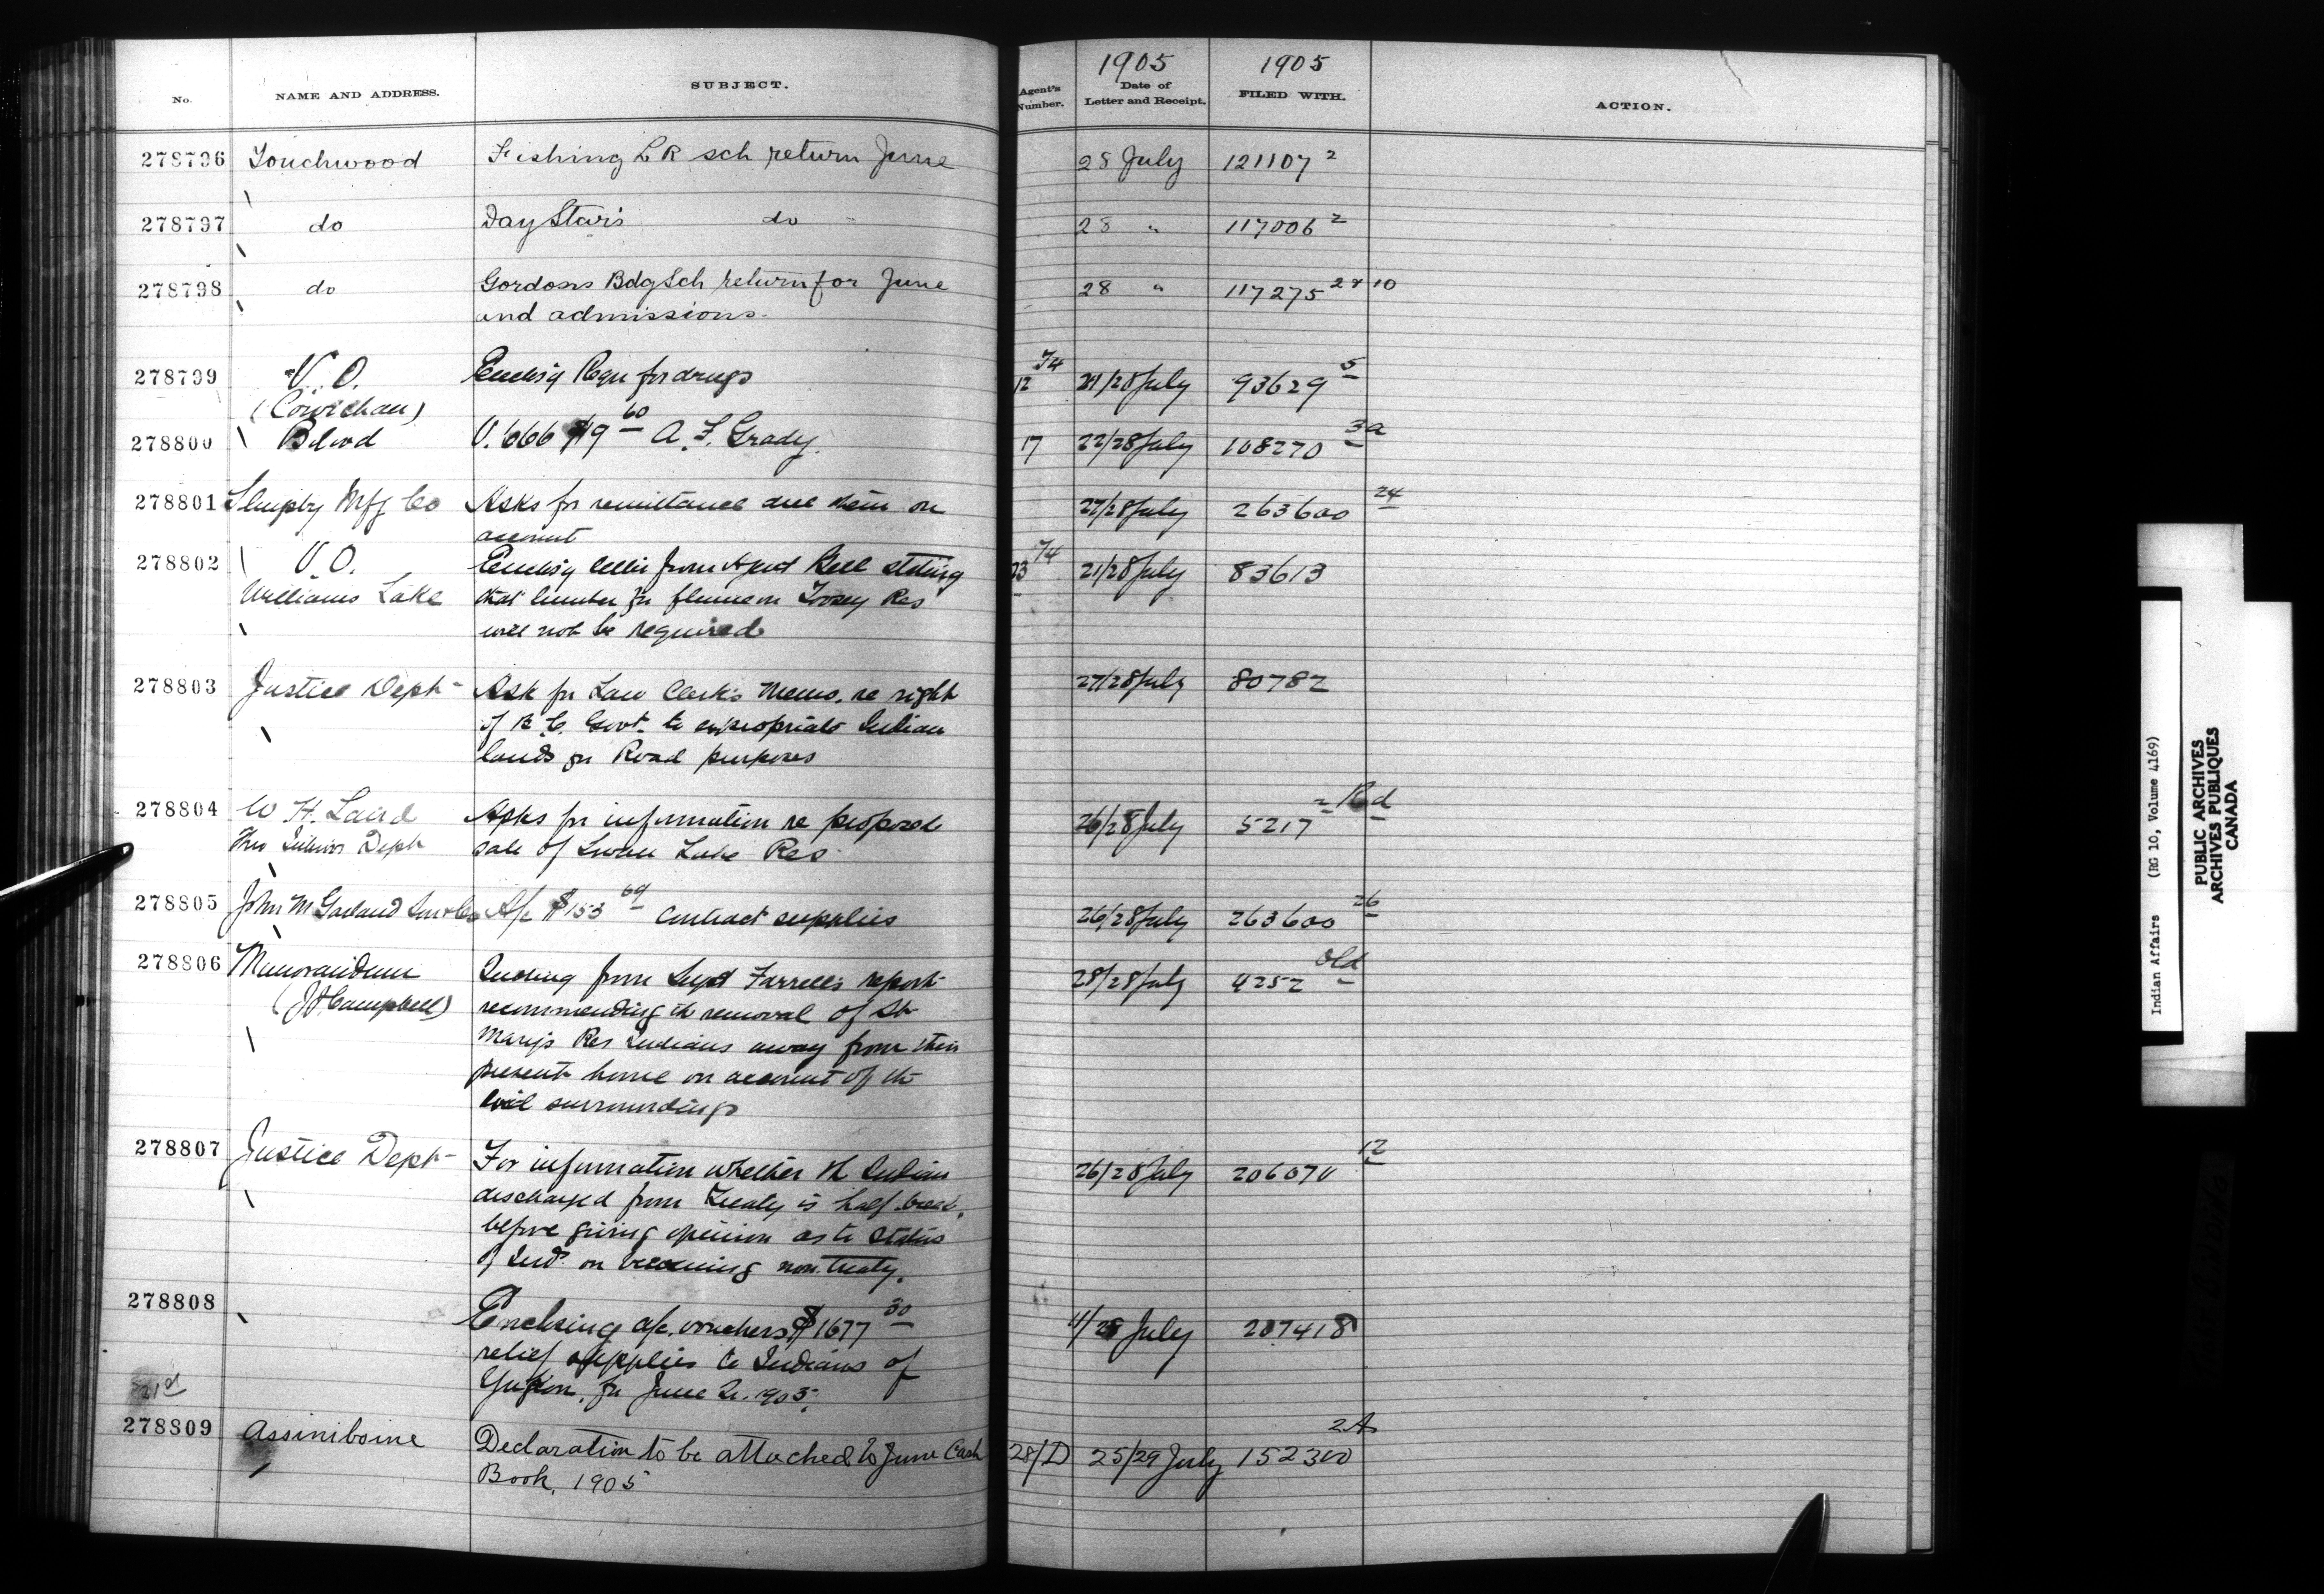 No. NAME AND ADDRESS. SUBJECT. Agent's Number. 1905 Date of Letter and Receipt. 1905 FILED WITH. ACTION.
278796 Touchwood Fishing L R sch return June 28 July 121107 2
278797 do Day Stars do 28 " 117006 2
278798 do Gordons Bdg Sch return for June 28 " 117275 2 & 10
and admissions.
278799 V. O. Enclos'g Requ for drugs 12 74 21/28 July 93629 5
(Cowichan)
278800 Blood V. 666 $19 60 A. F. Grady. 17 22/28 July 108270 3a
278801 Slingsby Mfg Co Asks for remittance due them on 27/28 July 263600 24
account
278802 V. O. Enclos'g letter from Agent Bell stating 23 74 21/28 July 83613
Williams Lake that lumber for flume on Toosey Res
will not be required
278803 Justice Dept Ask for Law Clerk's Memo. re right 27/28 July 80782
of B. C. Govt. to expropriate Indian
lands for Road purposes
278804 W. H. Laird Asks for information re proposed 26/28 July 5217 2 Rd
Thro Interior Dept sale of Swan Lake Res
278805 John M Garland Son & Co A/c $153 69 contract supplies 26/28 July 263600 26
278806 Memorandum Quoting from Supt Farrell's report 28/28 July 4252 Old
(J A Campbell) recommending the removal of St
Mary's Res Indians away from their
present home on account of the
evil surroundings
278807 Justice Dept For information whether the Indian 26/28 July 206070 12
discharged from Treaty is half breed,
before giving opinion as to status
of Inds on becoming non treaty.
278808 Enclosing a/c. vouchers $1677 30 11/28 July 207418
relief supplies to Indians of
Yukon, for June Qr. 1905.
21d
278809 Assiniboine Declaration to be attached to June Cash 28/D 25/29 July 152300 2A
Book. 1905
Indian Affairs (RG 10, Volume 4169)
PUBLIC ARCHIVES
ARCHIVES PUBLIQUES
CANADA